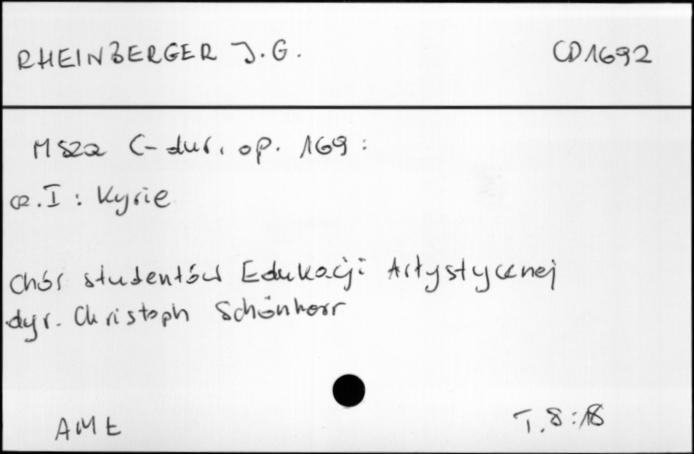 RHEINBERGER J.G. CD1692
Msza C-dur, op. 169:
cz. I : Kyrie
Chór studentów Edukacji Artystycznej
dyr. Christoph Schönherr
AME T. 8:18